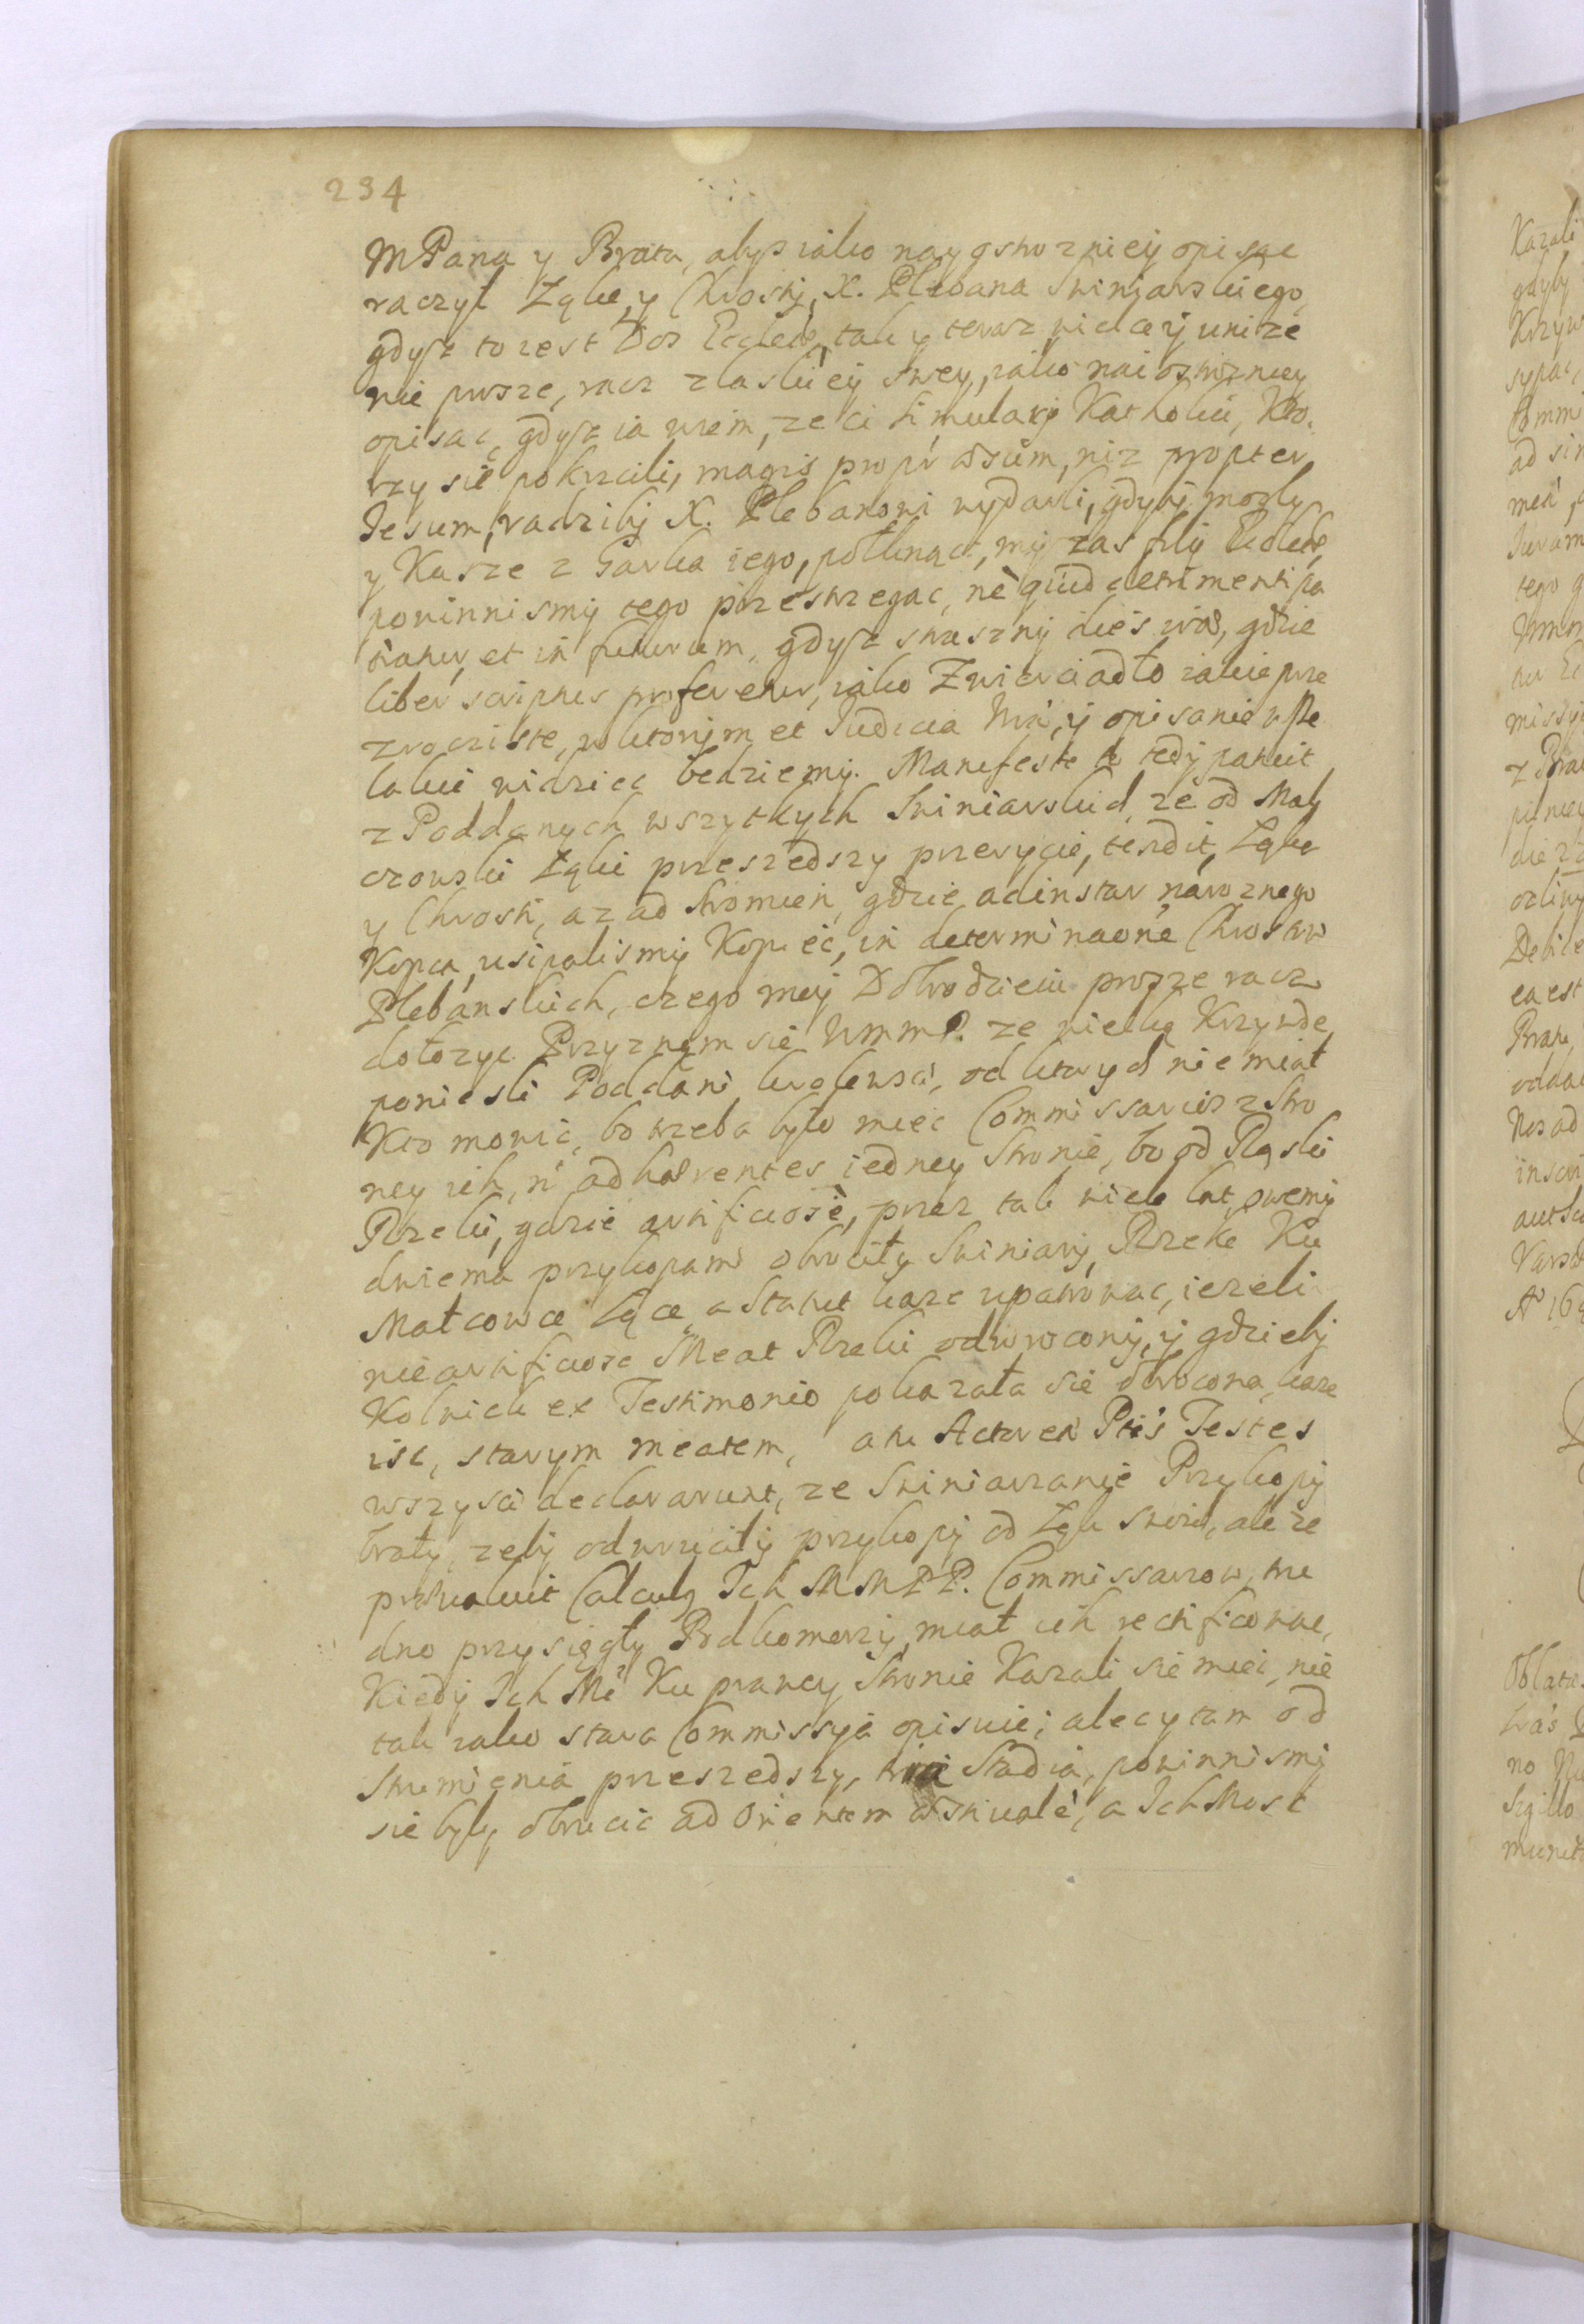 234
MPana y Brata, abys iako nayostroznieÿ opisac
raczył Łąke, y Chrostÿ, X. Plebana Swiniarskiego,
gdysz to iest Dos Eccleæ, tak y teraz wiecey unize
nie prosze, racz z łaski ey swey, iako nai ostrozniey
opisac, gdysz ia wiem, ze ci simulatÿ Katholici, Kto
rzy sie pokrzcili, magis propr Esum, niz propter
Jesum, radzibÿ X. Plebanowi wydarli, gdybÿ mogly
y Kusze z Garka iego, połknąc, mÿ zas filÿ Eccleæ,
powinnismÿ tego przestrzegac, nè quid detrimenti pa
tiatur, et in futurum, gdysz straszny dies iræ, gdzie
liber scriptus proferetur, iako Zwierciadło iakie prze
zroczyste, w ktorÿm et Judicia Nra, ÿ opisanie wsze
lakie widziec bedziemÿ. Manifeste tedÿ patuit
z Poddanych wszytkich Swiniarskich, ze od Mał
czowski Łąki przeszedszy przerycie, Łąke
y Chrosti, az ad Stromień, gdzie adinstar naroznego
Kopca, usipalismÿ Kopiec, in determinaone Chrostow
Plebánskich, czego moy Dobrodzieiu prosze racz
dołozyc. Przyznam sie WMMP. ze wielką Krzywde
poniesli Poddani krolewsci, od ktorych nie miał
Kto mowic, bo trzeba było miec Commissarios z Stro
ny ich, n adhærentes iedney Stronie, bo od Rząski
Rzeki, gdzie artificiosè, przez tak wiele lat, swemi
dwiema przykopami obrociły Swiniarÿ, Rzeke Ku
Małcowce Łące, a Statut kaze upatrowac, iezeli
nie artificiose Meat Rzeki odwroconÿ, ÿ gdziebÿ
Kolwiek ex Testimonio pokazała sie obrocona, kaze
isc, starym meatem, Ptis Testes
wszysci declararunt, ze Swiniarzanie Przykopÿ
brały, zebÿ odwrocilÿ przykopÿ od Łąk swoich, ale ze
prævaluit Calculg Ich MMPP. Commissarzow, tru
dno przysięgły Podkomorzÿ, miał ich rectificowac,
Kiedÿ Ich Mc Ku prawey Stronie Kazali sie miec, nie
tak iako stara Commissyia opisuie; alec y tam od
Strumienia przeszedszy, Stadia, powinnismÿ
sie byly obrucic ad Orientem æstivalè, a Ich Mosc